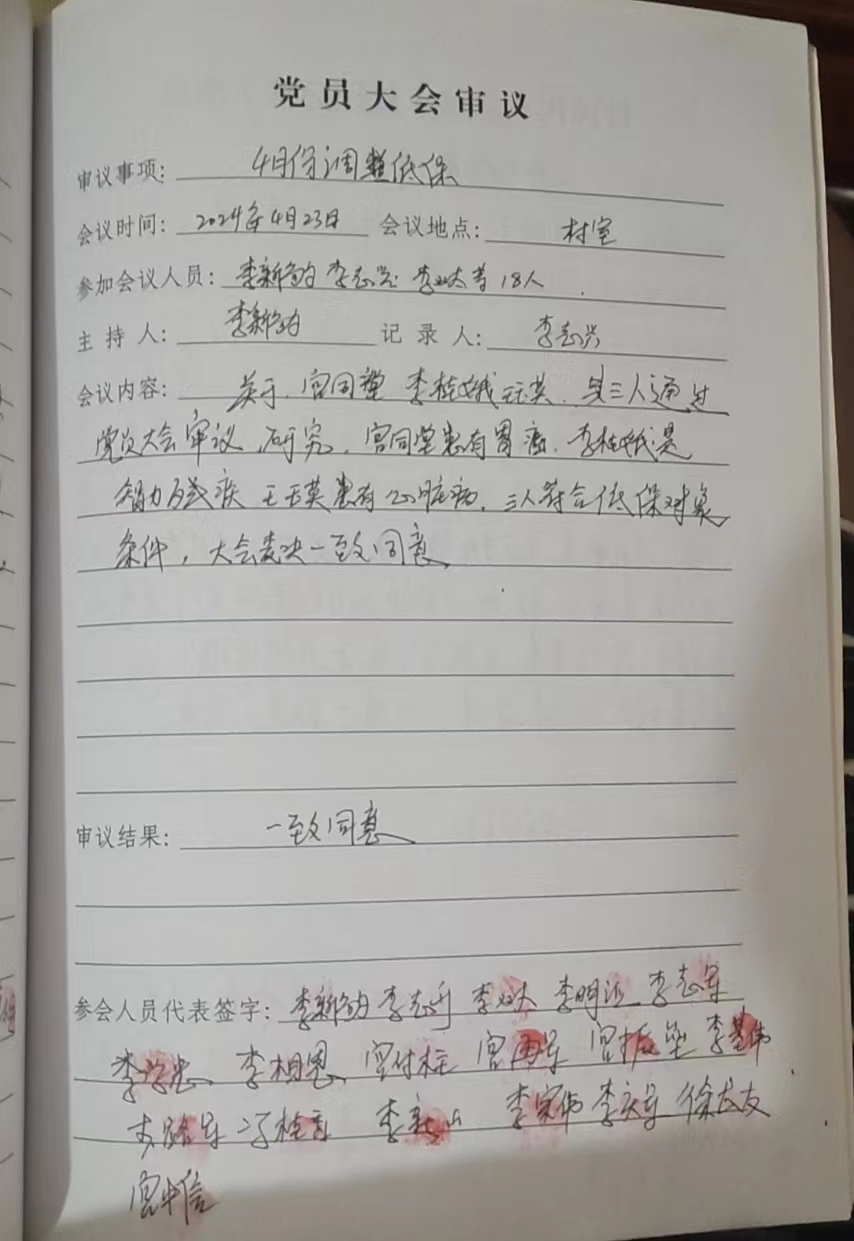 党员大会审议
审议事项: 4月份调整低保
会议时间: 2024年4月23日 会议地点: 村室
参加会议人员: 李新钧 李志兴 李双大等18人
主持人: 李新钧 记录人: 李志兴
会议内容: 关于.宫同堂 李桂娥 王英.共三人通过
党员大会审议.研究.宫同堂患有胃癌.李桂娥是
智力残疾 王玉英患有心脏病.三人符合低保对象
条件,大会表决一致同意
审议结果: 一致同意
参会人员代表签字: 李新钧 李志 李双大 李明 李志军
李学忠 李相恩 宫付柱 宫军 宫振堂 李基伟
军 冯桂言 李新山 李宋伟 李庆军 徐长友
宫中信